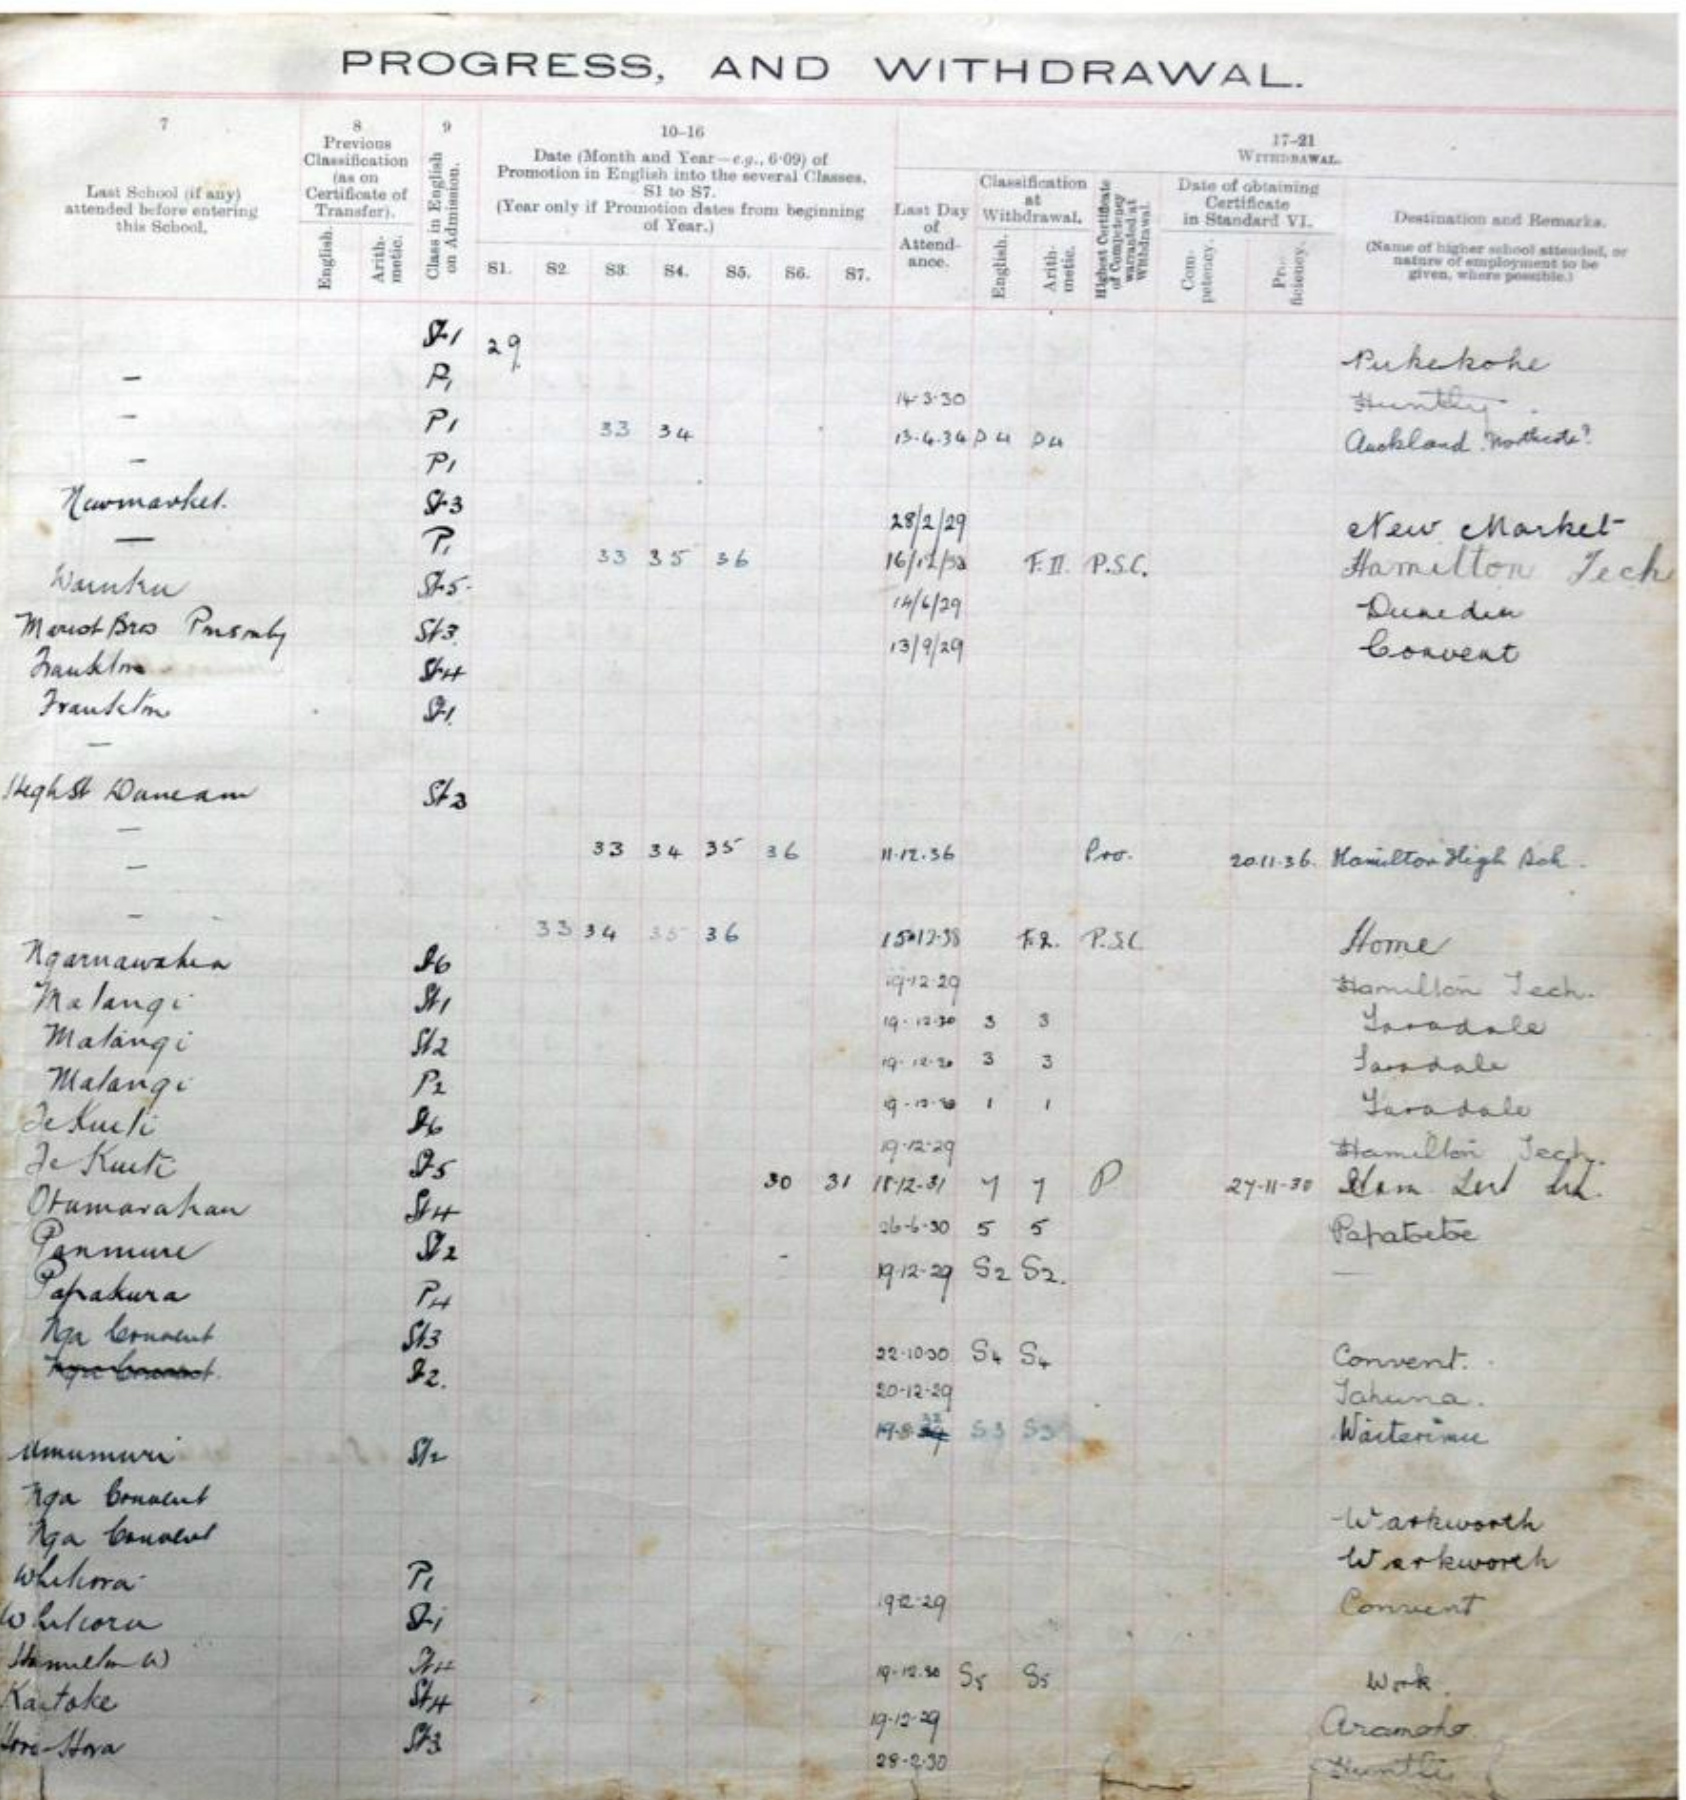 PROGRESS, AND WITHDRAWAL.
7 8 9 10-16 17-21
Last School (if any) attended before entering this School.
Previous Classification (as on Certificate of Transfer).
English. Arith-metic.
Class in English on Admission.
Date (Month and Year—e.g., 6·09) of Promotion in English into the several Classes, S1 to S7.
(Year only if Promotion dates from beginning of Year.)
S1. S2. S3. S4. S5. S6. S7.
WITHDRAWAL.
Last Day of Attend-ance.
Classification at Withdrawal.
English. Arith-metic.
Highest Certificate of Competency warranted at Withdrawal.
Date of obtaining Certificate in Standard VI.
Com-petency. Pro-ficiency.
Destination and Remarks.
(Name of higher school attended, or nature of employment to be given, where possible.)
St 1 29 Pukekohe
— P1 14-3-30 Huntly
— P1 33 34 13.4.34 P4 P4 Auckland
— P1
Newmarket. St 3 28/2/29 New Market
— P1 33 35 36 F.II. P.S.C. Hamilton Tech
Waiuku St 5 14/6/29 Dunedin
Marist Bros Ponsonby St 3 13/9/29 Convent
Frankton St 4
Frankton St 1
—
St 3
—
— 33 34 35 36 11.12.36 Pro. 20.11.36. Hamilton High Sch.
— 33 34 35 36 15-12-38 F.2. P.S.C. Home
Ngaruawahia St 6 19-12-29 Hamilton Tech.
Matangi St 1 19-12-30 3 3 Taradale
Matangi St 2 19-12-30 3 3 Taradale
Matangi P2 1 1 Taradale
Te Kuiti St 6 19-12-29 Hamilton Tech.
Te Kuiti St 5 30 31 18-12-31 7 7 P 27-11-30 Ham
St 4 26-6-30 5 5 Papatoetoe
Panmure St 2 19-12-29 S2 S2. —
Papakura P4
Nga Convent St 3 22-10-30 S4 S4 Convent.
Nga Convent St 2. 20-12-29 Tahuna.
19-8 S3 S3 Waiterimu
Umumuri St 2
Nga Convent
Nga Convent Warkworth
Warkworth
Whitiora P1
Whitiora St 1 19-12-29 Convent
Hamilton W St 4 19-12-30 S5 S5 Work.
Kaitoke St 4 19-12-29 Aramoho
St 3 28-2-30 Huntly